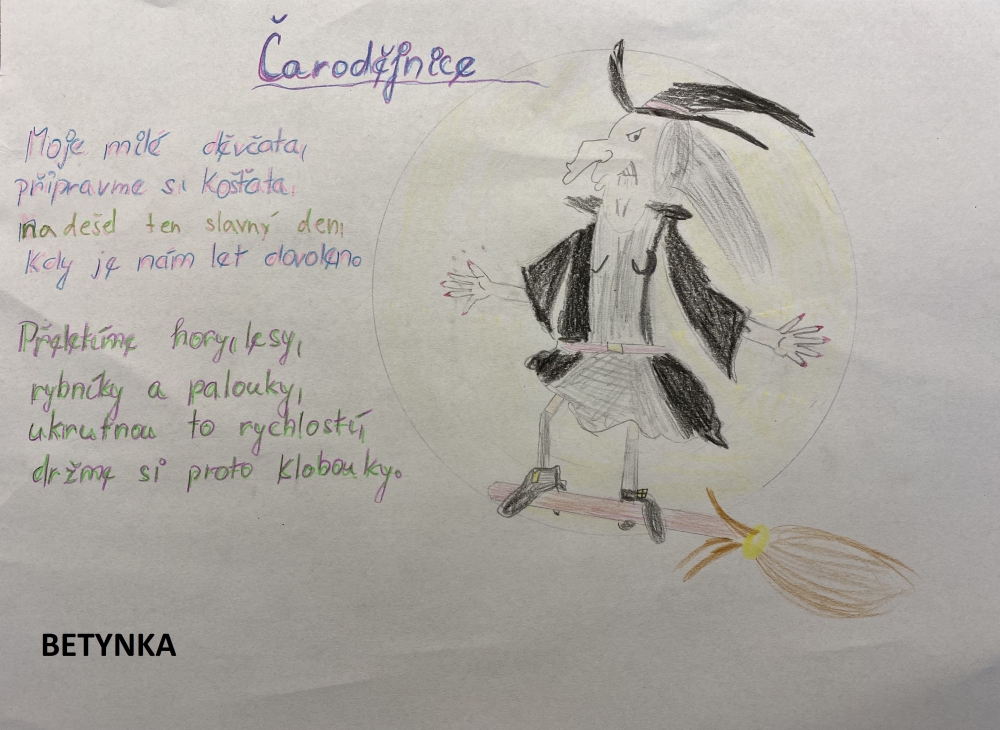 Čarodějnice
Moje milé děvčata,
připravme si košťata,
nadešel ten slavný den,
Kdy je nám let dovolen.
Přeletíme hory, lesy,
rybníky a palouky,
ukrutnou to rychlostí,
držme si proto klobouky.
BETYNKA